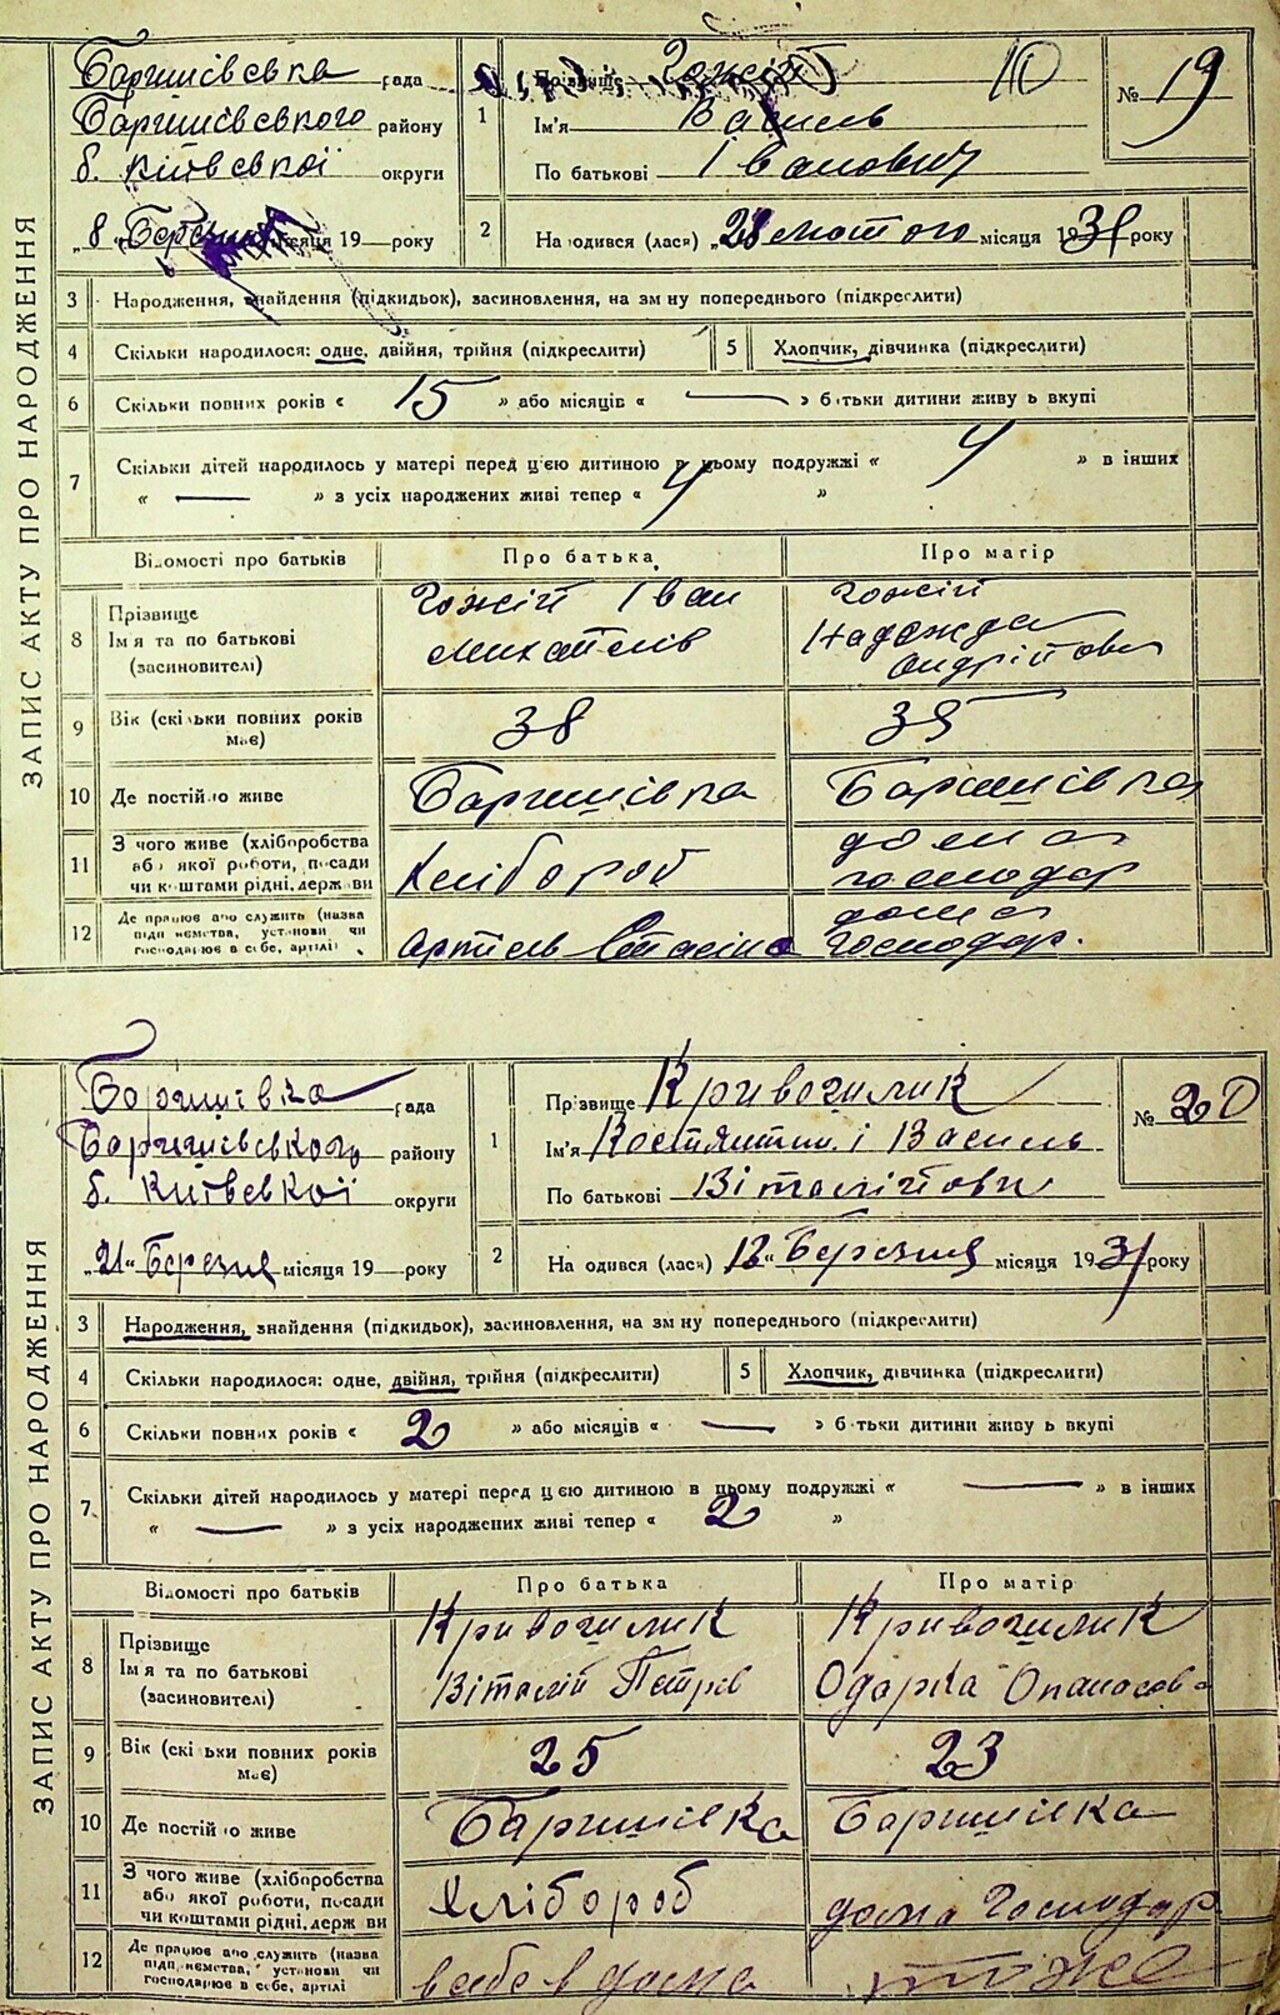 ЗАПИС АКТУ ПРО НАРОДЖЕННЯ
Баришівська рада
Баришівського району
б. Київської округи
„8 „ Березня місяця 19 — року
1 Прізвище Гожій
Ім'я Василь
По батькові Іванович
10
№ 19
2 На одився (лася) „28 лютого місяця 1931 року
3 Народження, знайдення (підкидьок), засиновлення, на зм ну попереднього (підкреслити)
4 Скільки народилося: одне, двійня, трійня (підкреслити)
5 Хлопчик, дівчинка (підкреслити)
6 Скільки повних років « 15 » або місяців « — » б тьки дитини живу ь вкупі
7 Скільки дітей народилось у матері перед цією дитиною в цьому подружжі « 4 » в інших
« — » з усіх народжених живі тепер « 4 »
Відомості про батьків Про батька Про матір
8 Прізвище Ім я та по батькові (засиновителі)
Гожій Іван
Михайлів
Гожій
Надежда
Андрійовна
9 Вік (скільки повних років має) 38 35
10 Де постійно живе Баришівка Баришівка
11 З чого живе (хліборобства
або якої роботи, посади
чи коштами рідні, держ ви
Хлібороб
дома
господар
12 Де працює або служить (назва
підп иємства, установи чи
господарює в себе, артілі
Артіль Сталіна
дома
господар.
ЗАПИС АКТУ ПРО НАРОДЖЕННЯ
Баришівка рада
Баришівського району
б. Київської округи
„21 „ Березня місяця 19 — року
1 Прізвище Кривошлик
Ім'я Костянтин і Василь
По батькові Віталійови
№ 20
2 На одився (лася) 12 „ Березня місяця 1931 року
3 Народження, знайдення (підкидьок), засиновлення, на зм ну попереднього (підкреслити)
4 Скільки народилося: одне, двійня, трійня (підкреслити)
5 Хлопчик, дівчинка (підкреслити)
6 Скільки повних років « 2 » або місяців « — » б тьки дитини живу ь вкупі
7 Скільки дітей народилось у матері перед цією дитиною в цьому подружжі « — » в інших
« — » з усіх народжених живі тепер « 2 »
Відомості про батьків Про батька Про матір
8 Прізвище Ім я та по батькові (засиновителі)
Кривошлик
Віталій Петрів
Кривошлик
Одарка Опанасов
9 Вік (скі ьки повних років має) 25 23
10 Де постій о живе Баришівка Баришівка
11 З чого живе (хліборобства
або якої роботи, посади
чи коштами рідні, держ ви
Хлібороб
дома господар
12 Де працює або служить (назва
підп иємства, установи чи
господарює в себе, артілі
в себе в дома
тоже